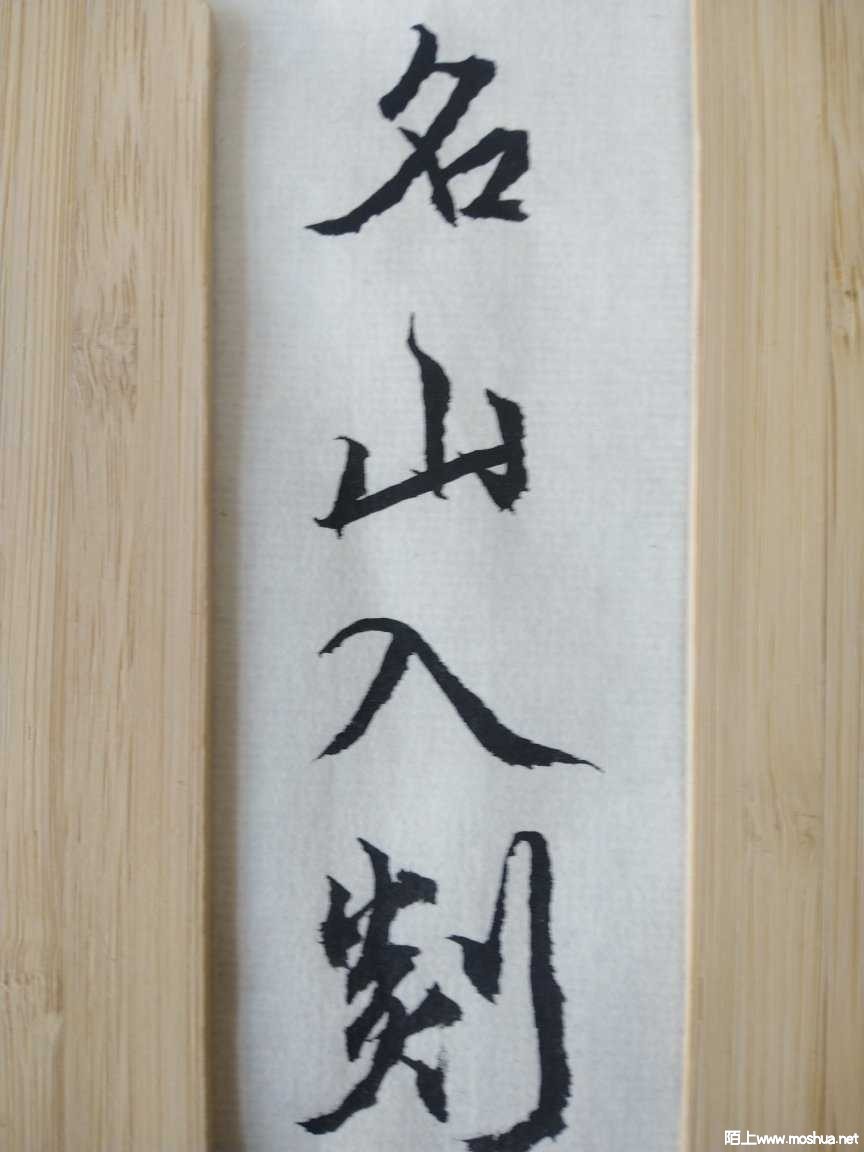 名山入剡
陌上www.moshua.net